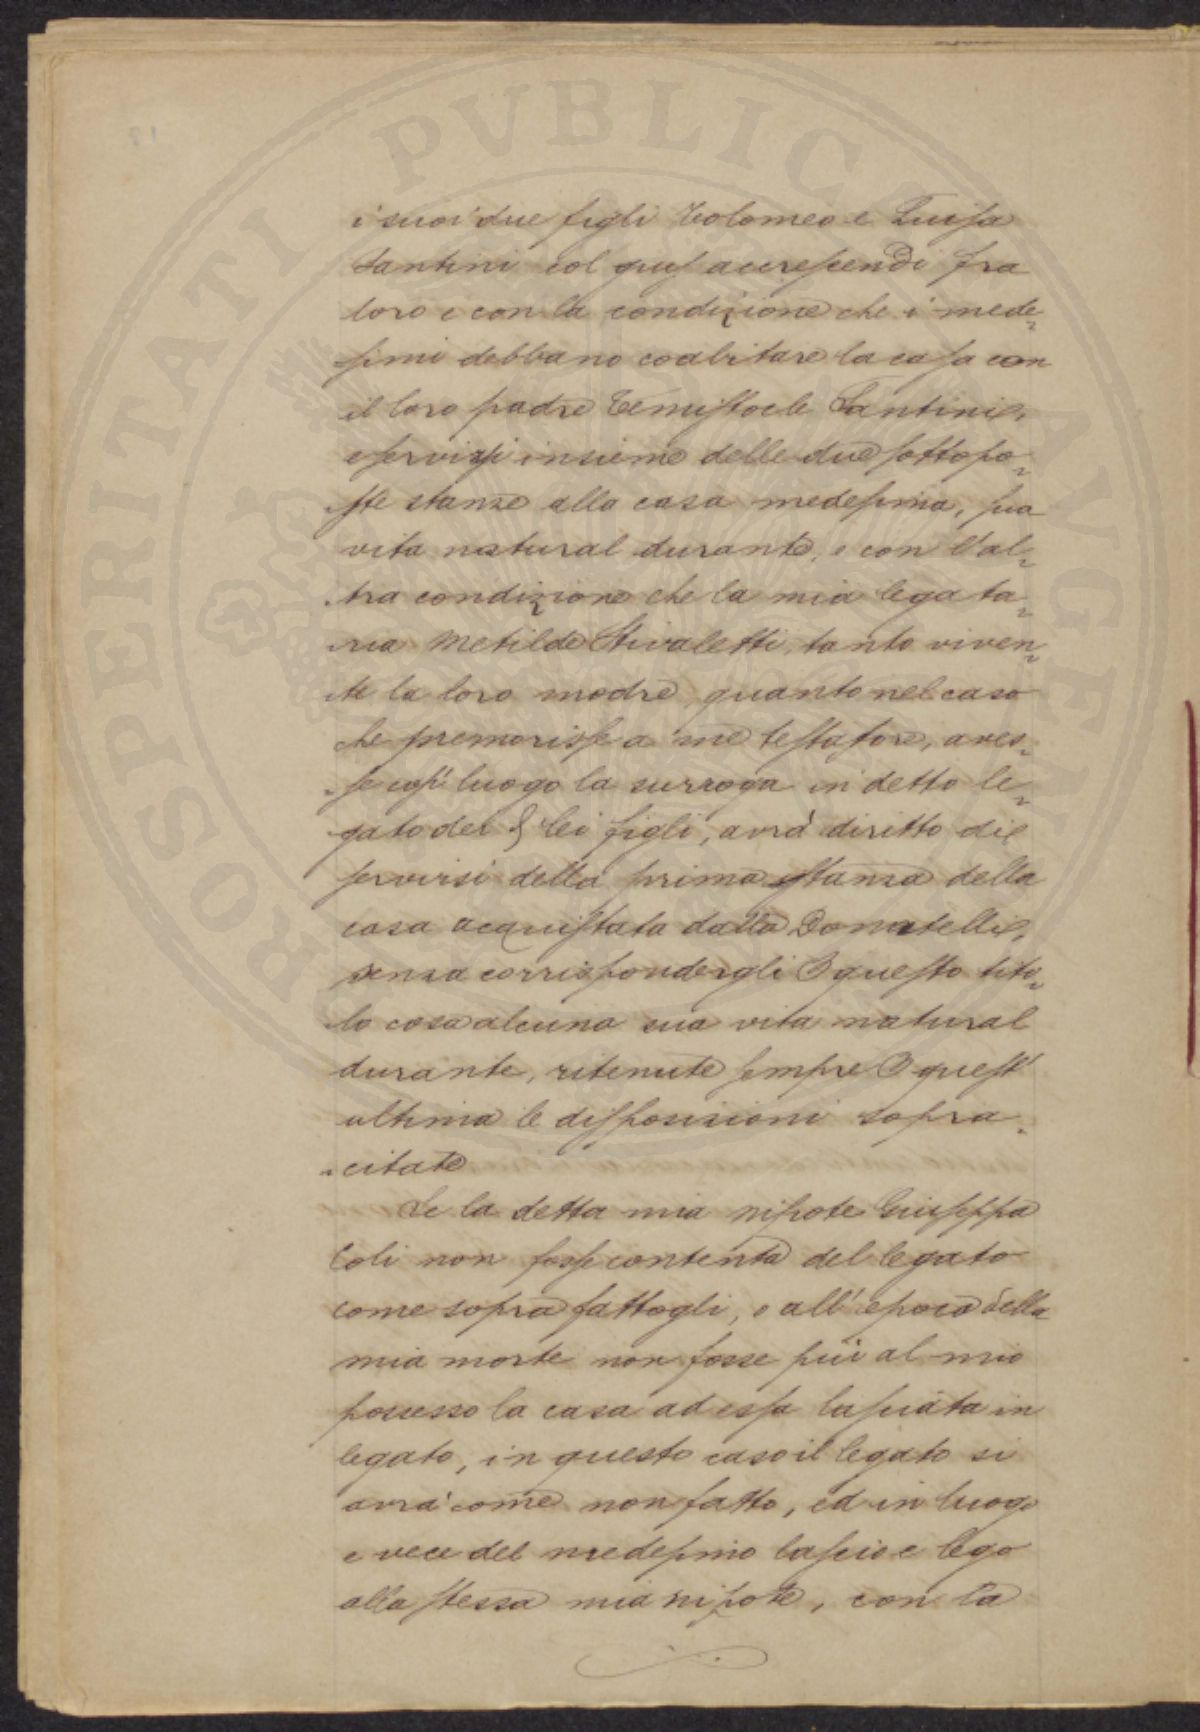 PROSPERITATI PVBLICAE AVGENDAE
i suoi due figli Tolomeo e Luisa
Santini col jus accrescendi fra
loro e con la condizione che i mede-
simi debbano coabitare la casa con
il loro padre Temistocle Santini,
e servirsi insieme delle due sottopo-
ste stanze alla casa medesima, sua
vita natural durante, e con l'al-
tra condizione che la mia legata-
ria Metilde Stivaletti, tanto viven-
te la loro madre, quanto nel caso
che premorisse a me testatore, aves-
se così luogo la surroga in detto le-
gato dei di lei figli, avrà diritto di
servirsi della prima stanza della
casa acquistata dalla Donatelli,
senza corrispondergli p questo tito-
lo cosa alcuna sua vita natural
durante, ritenute sempre p quest'
ultima le disposizioni sopra-
citate
Se la detta mia nipote Giuseppa
Coli non fosse contenta del legato
come sopra fattogli, o all'epoca della
mia morte non fosse più al mio
possesso la casa ad essa lasciata in
legato, in questo caso il legato si
avrà come non fatto, ed in luogo
e vece del medesimo lascio e lego
alla stessa mia nipote, con la